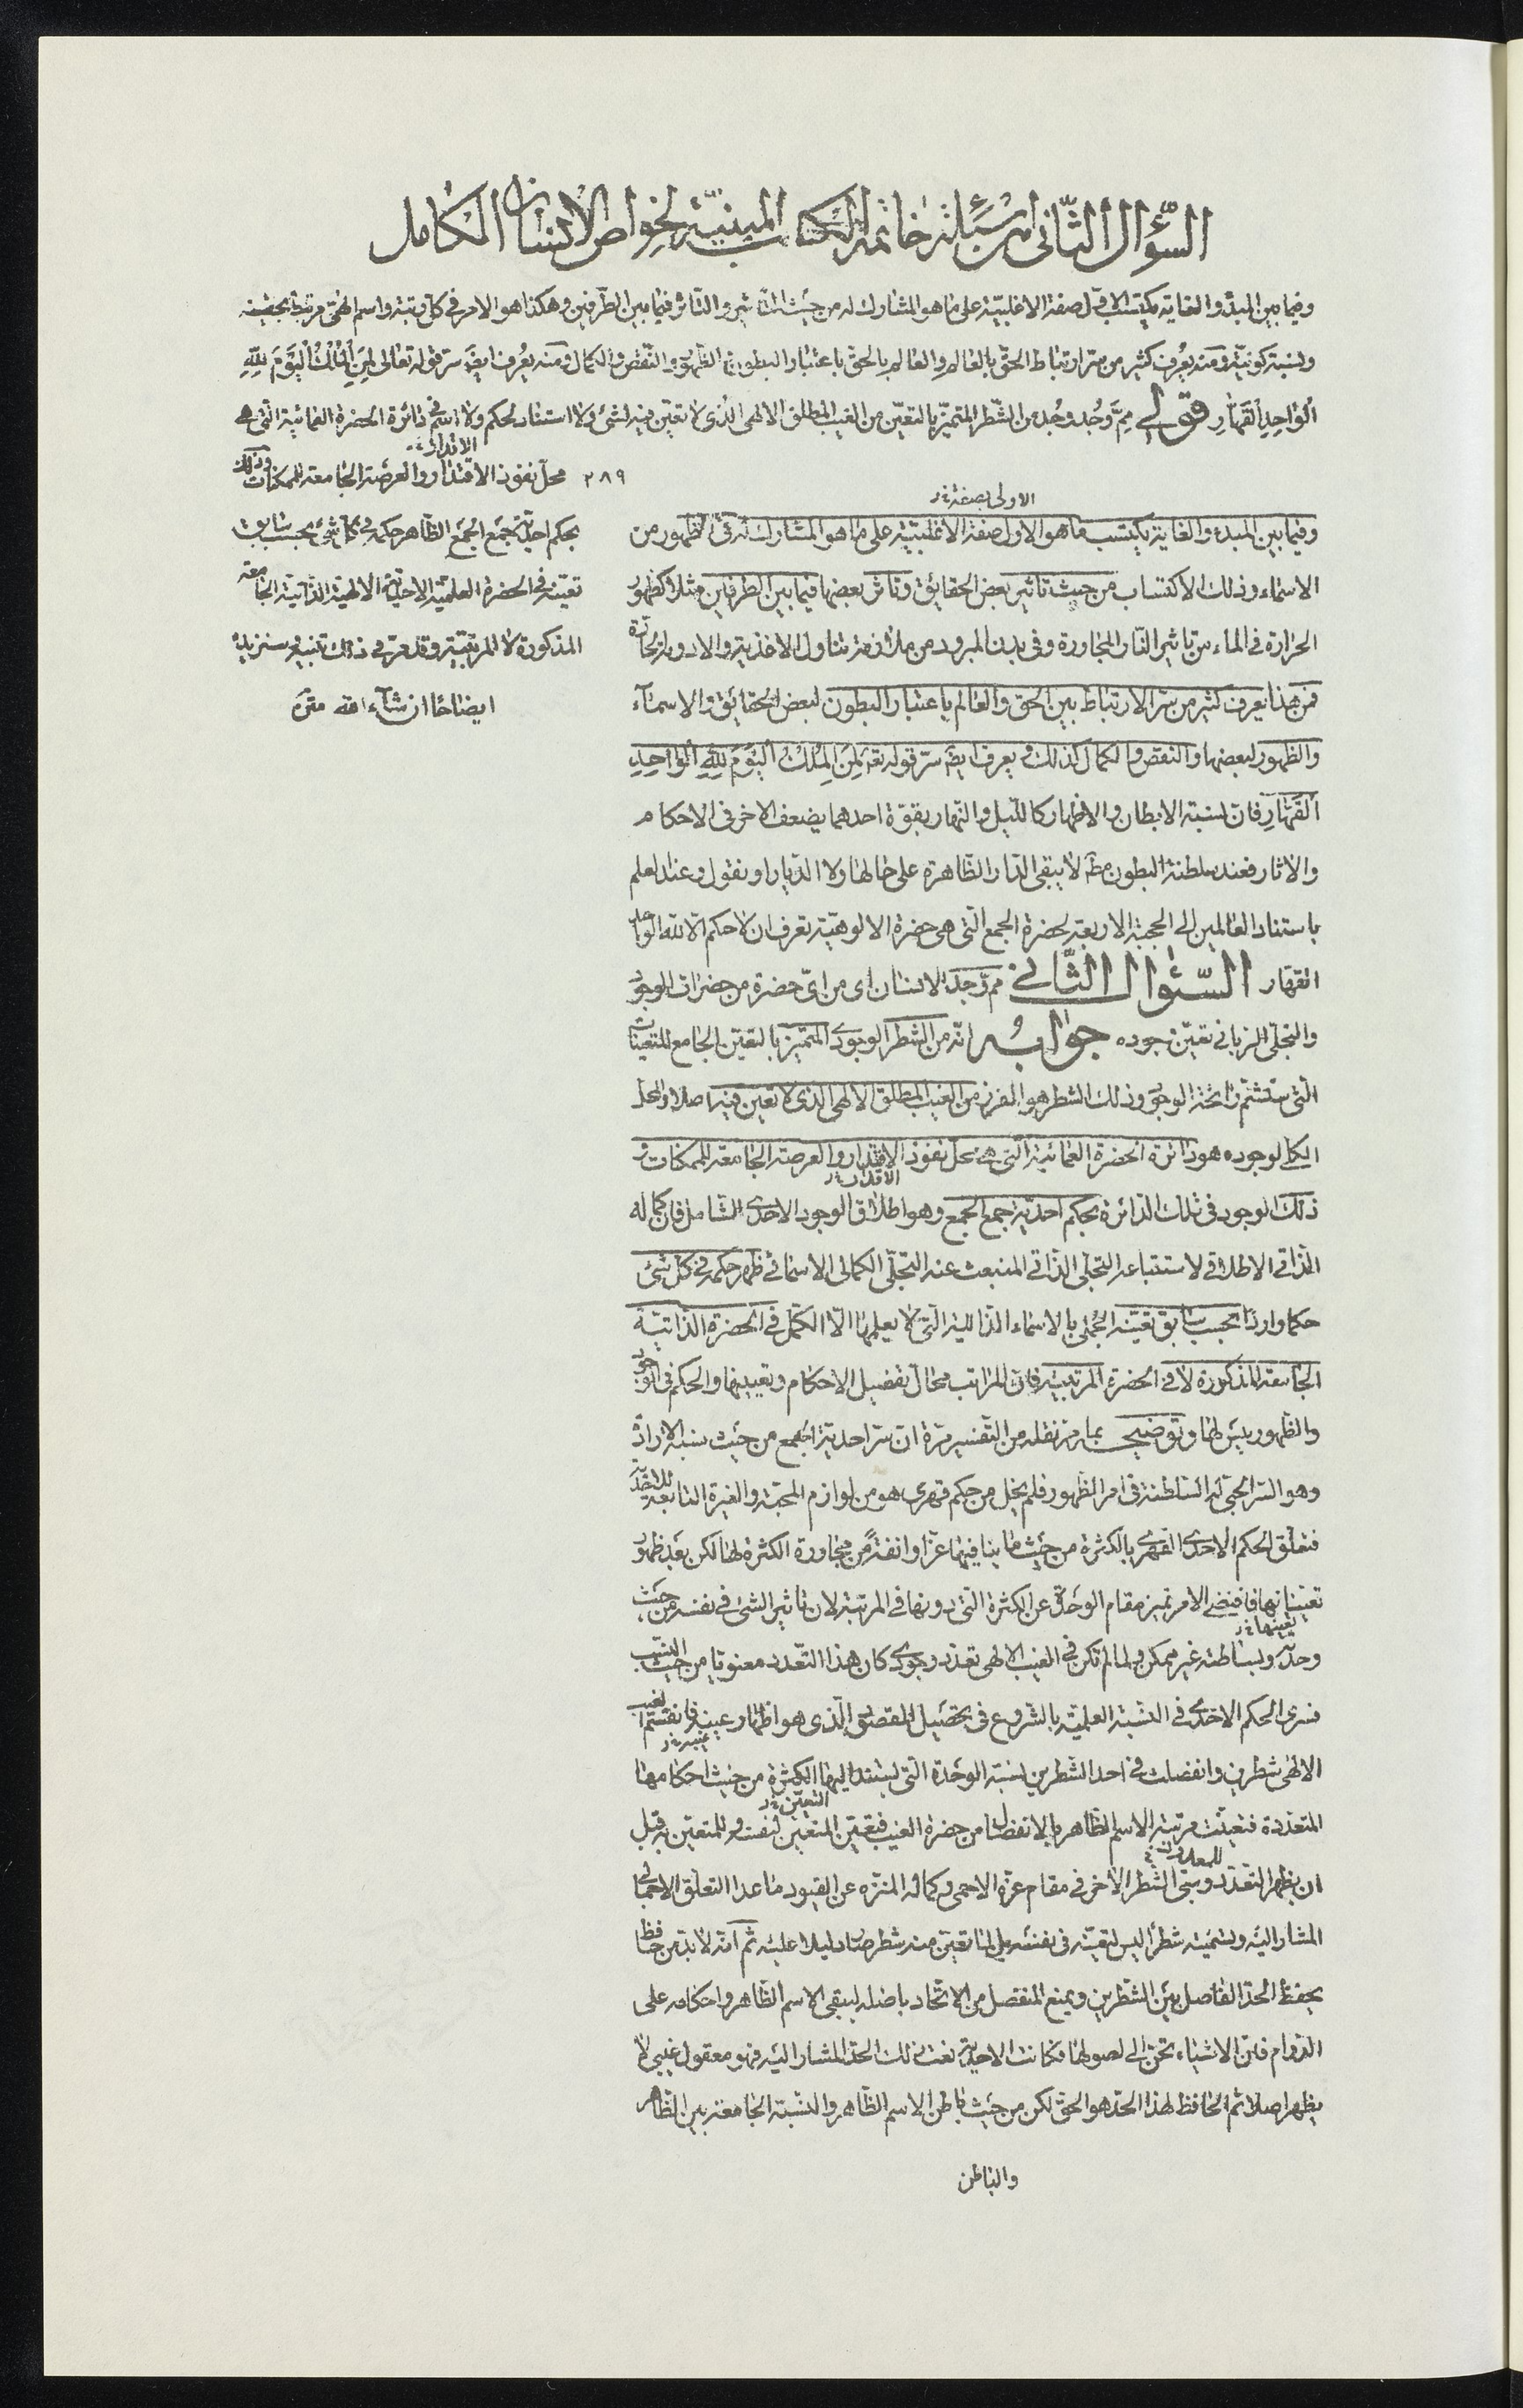 السّؤال الثّاني من اسئلة خاتمة الكتاب المبنيّة لخواصّ الانسان الكامل
وفيما بين المبدء والغاية يكتسب الاوّل صفة الاغلبيّة على ما هو المشارك له من حيث التأثير والتأثر فيما بين الطرفين وهكذا هو الامر في كلّ رتبة واسم الهيّ مرتبط بحقيقة
ونسبة كونيّة ومنه يعرف كثير من سرّ ارتباط الحقّ بالعالم والعالم بالحق باعتبار البطون ثم الظهور والنّقص والكمال ومنه يعرف ايضَ سرّ قوله تعالى لِمَنِ الْمُلْكُ الْيَوْمَ لِلّٰهِ
الْوَاحِدِ الْقَهَّارِ قولي مِمَّ وُجِد وُجِد من الشّطر المتميّز بالتعيّن من الغيب المطلق الالهي الذي لا تعيّن فيه لشئ ولا استناد لحكم ولا اسم في دائرة الحضرة العمائية الّتي هي
محلّ نفوذ الاقتدار والعرصة الجامعة للممكنات وذلك
الاقدار
٢٨٩
بحكم احديّة جمع الجمع الظاهر حكمه في كل شئ بحسب سابق
تعيّنه في الحضرة العلمية الاحدية الالهية الذاتية الجامعة
المذكورة لا المرتبيّة وقد مرّ في ذلك تنبيه وسنزيده
ايضاحا ان شآء الله
الاولى بصفة
وفيما بين المبدء والغاية يكتسب ما هو الاول صفة الاغلبيّة على ما هو المشارك له في الظهور من
الاسماء وذلك الاكتساب من حيث تاثير بعض الحقائق وتاثر بعضها فيما بين الطرفين مثلا كظهور
الحرارة في الماء من تاثير النّار المجاورة وفي بدن المبرود من ملازمة تناول الاغذية والادوية الحارّة
فمن هذا يعرف كثير من سرّ الارتباط بين الحق والعالم باعتبار البطون لبعض الحقائق والاسمآء
والظهور لبعضها والنقص والكمال كذلك ويعرف ايضَ سرّ قوله تعَ لِمَنِ الْمُلْكُ الْيَوْمَ لِلّٰهِ الْوَاحِدِ
الْقَهَّارِ فانّ نسبة الابطان والاظهار كالليل والنهار بقوّة احدهما يضعف الاخر في الاحكام
والاثار فعند سلطنة البطون مطَ لا يبقى الدّار الظاهرة على حالها ولا الديّار او نقول وعند العلم
باستناد العالمين الى الحجبة الاربعة لحضرة الجمع الّتي هي حضرة الالوهيّة تعرف ان لا حكم الّا لله الواحد
القهّار السّئوال الثّاني ممّ وجد الانسان اى من ايّ حضرة من حضرات الوجود
والتجلّي الربّاني تعيّن وجوده جوابه انّه من الشطر الوجوديّ المتميّز بالتعيّن الجامع للتعيّنات
الّتي ستشتم رائحة الوجود وذلك الشطر هو المفرز من الغيب المطلق الالهي الذي لا تعيّن فيه اصلا والمحلّ
الكلي لوجوده هو دائرة الحضرة العمائية الّتي هي محل نفوذ الاقتدار والعرصة الجامعة للممكنات و
الاقدار
ذلك الوجود في تلك الدائرة بحكم احديّة جمع الجمع وهو اطلاق الوجود الاحدي الشامل فان كماله
الذاتي الاطلاقي لاستتباعه التجلّي الذاتي المنبعث عنه التجلّي الكمالي الاسمائي ظهر حكمه في كلّ شئ
حكما واردا بحسب سابق تعيّنه العلمي بالاسماء الذاتية الّتي لا يعلمها الّا الكمّل في الحضرة الذاتيّة
الجامعة المذكورة لا في الحضرة المرتبية فان المراتب محالّ تفصيل الاحكام وتعيينها والحكم في الوجود
والظهور ليس لها وتوضيحه بما مرّ نقله من التفسير مرّة ان سرّ احدية الجمع من حيث نسبة الارادة
وهو السرّ الحبّي له السّلطنة في امر الظهور فلم يخل من حكم قهري هو من لوازم المحبّة والغيرة التابعة للاحديّة
فتعلّق الحكم الاحديّ القهريّ بالكثرة من حيث ما ينافيها عزّا وانفةً من مجاورة الكثرة لها لكن بعد ظهور
تعيّناتها فافتضى الامر تميز مقام الوحدة عن الكثرة الّتي دونها في المرتبة لان تاثير الشئ في نفسه من حيث
تعيّنها
وحدته وبساطته غير ممكن ولما لم تكن في الغيب الالهي تعدّد وجوديّ كان هذا التعدّد معنويّا من حيث النسب
فسرى الحكم الاحديّ في النسبة العلمية بالشروع في تحصيل المقصود الذي هو اظهار عينه فانقسم الغيب
الالهي شطرين وانفصلت في احد الشطرين نسبة الوحدة الّتي تستند اليها الكثرة من حيث احكامها
المتعدّدة فتعيّنت مرتبة الاسم الظاهر بالانفصال من حضرة الغيب فتعيّن المتعيّن لنفسه وللمتعيّن به قبل
ان يظهر التعدّد وبقى الشطر الاخر في مقام عزّه الاحمى وكماله المنزّه عن القيود ما عدا التعلّق الاجماليّ
المشار اليه وتسميته شطرا ليس لتعيّنه في نفسه بل لما تعيّن منه شطر صار دليلا عليه ثم انّه لا بدّ من حافظ
يحفظ الحدّ الفاصل بين الشّطرين ويمنع المنفصل من الاتّحاد باصله ليبقى الاسم الظاهر واحكامه على
الدّوام فان الاشياء تحنّ الى اصولها فكانت الاحديّة نعت ذلك الحدّ المشار اليه فهو معقول غيبي لا
يظهر اصلا ثم الحافظ لهذا الحدّ هو الحقّ لكن من حيث باطن الاسم الظاهر والنسبة الجامعة بين الظاهر
والباطن